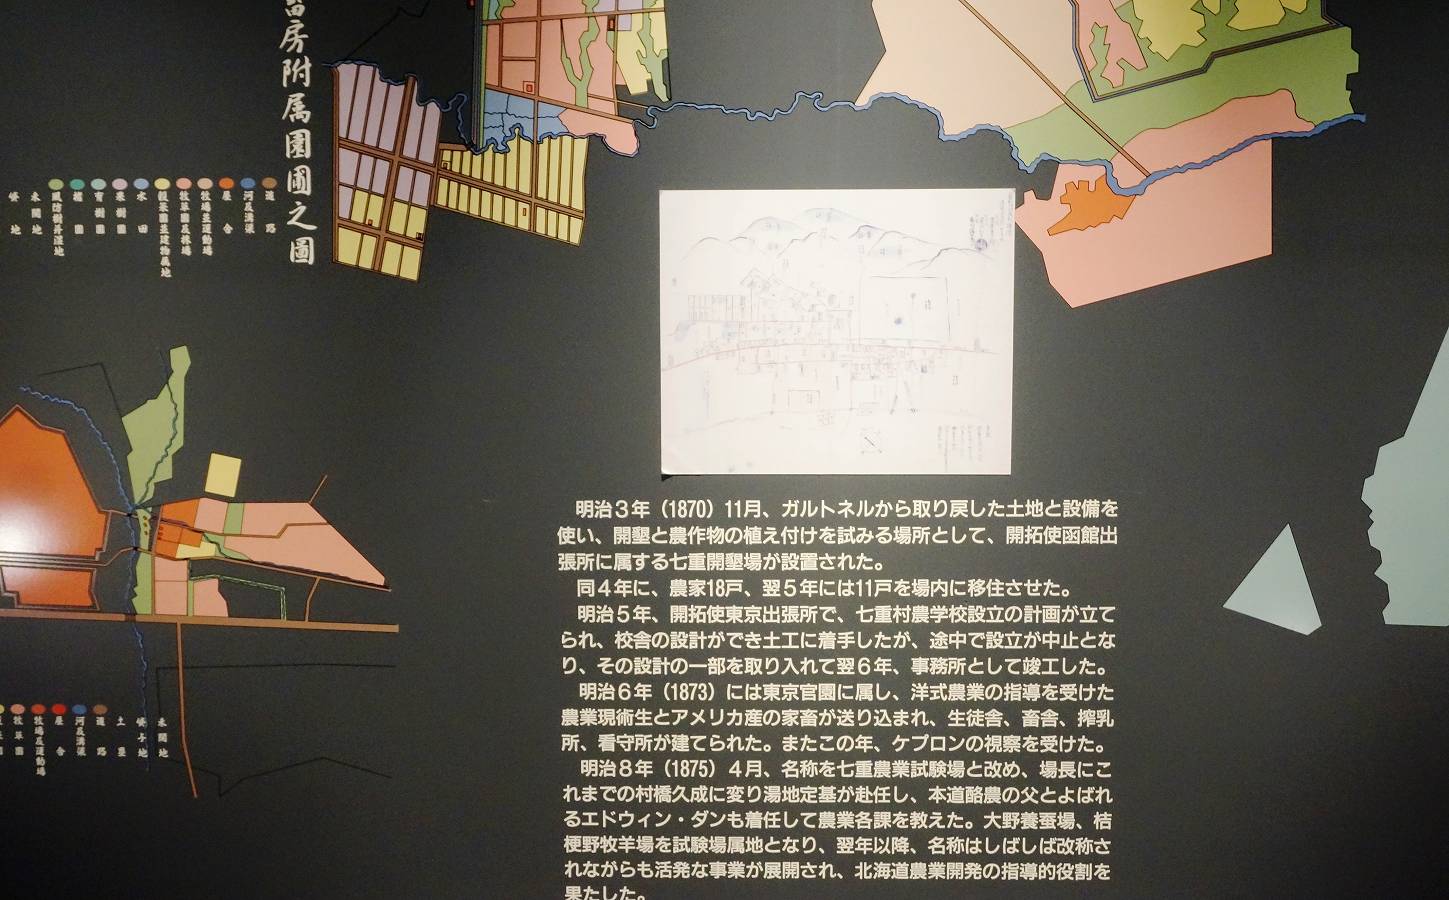 畜房附属園圃之圖
道路
河及溝渠
屋舎
牧場並運動場
牧草園及秣場
穀菜園並建物属地
水田
果樹園
育樹園
植園
風防樹并湿地
未開地
明治３年（1870）11月、ガルトネルから取り戻した土地と設備を
使い、開墾と農作物の植え付けを試みる場所として、開拓使函館出
張所に属する七重開墾場が設置された。
同４年に、農家18戸、翌５年には11戸を場内に移住させた。
明治５年、開拓使東京出張所で、七重村農学校設立の計画が立て
られ、校舎の設計ができ土工に着手したが、途中で設立が中止とな
り、その設計の一部を取り入れて翌６年、事務所として竣工した。
明治６年（1873）には東京官園に属し、洋式農業の指導を受けた
農業現術生とアメリカ産の家畜が送り込まれ、生徒舎、畜舎、搾乳
所、看守所が建てられた。またこの年、ケプロンの視察を受けた。
明治８年（1875）４月、名称を七重農業試験場と改め、場長にこ
れまでの村橋久成に変り湯地定基が赴任し、本道酪農の父とよばれ
るエドウィン・ダンも着任して農業各課を教えた。大野養蚕場、桔
梗野牧羊場を試験場属地となり、翌年以降、名称はしばしば改称さ
れながらも活発な事業が展開され、北海道農業開発の指導的役割を
果たした。
未開地
土塁
道路
河及溝渠
屋舎
牧場及運動場
牧草園